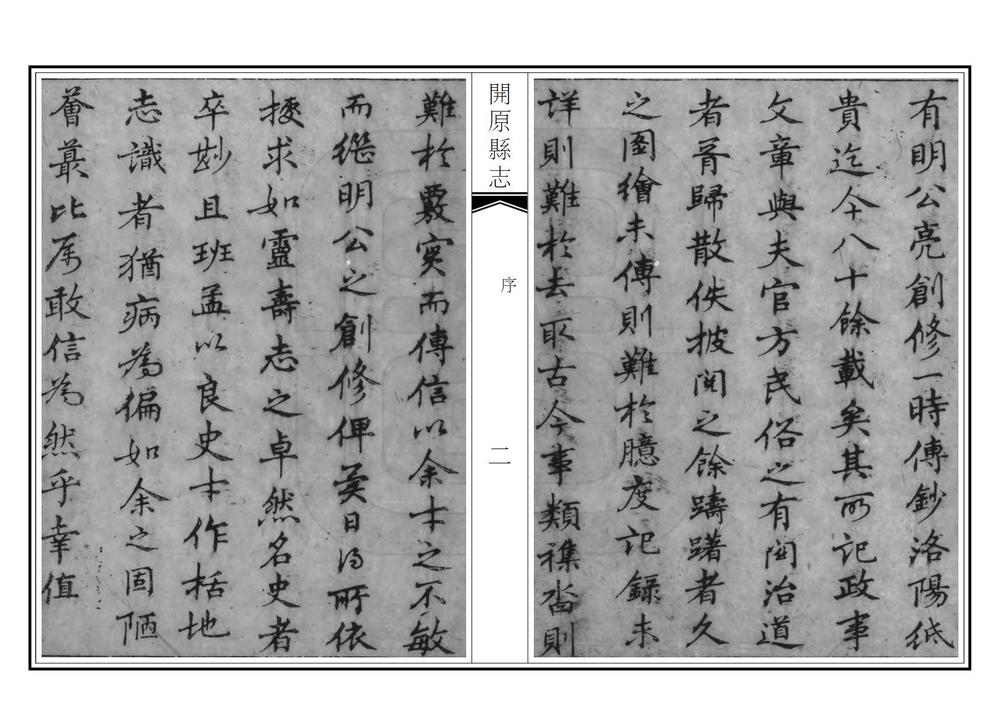 有明公亮創修一時傳鈔洛陽紙
貴迄今八十餘載矣其所記政事
文章與夫官方民俗之有關治道
者胥歸散佚披閱之餘躊躇者久
之圖繪未傳則難於臆度記錄未
詳則難於去取古今事類襍沓則
開原縣志
序
二
難於覈實而傳信以余才之不敏
而繼明公之創修俾異日得所依
據求如靈壽志之卓然名史者
卒尠且班孟以良史才作括地
志識者猶病為褊如余之固陋
薈蕞比屬敢信為然乎幸值